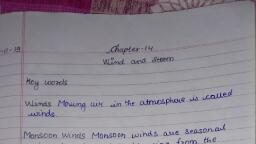 Chapter-14
Wind and storm
Key words
Winds Moving air in the atmosphere is called
winds.
Monsoon Winds Monsoon winds are seasonal
from the